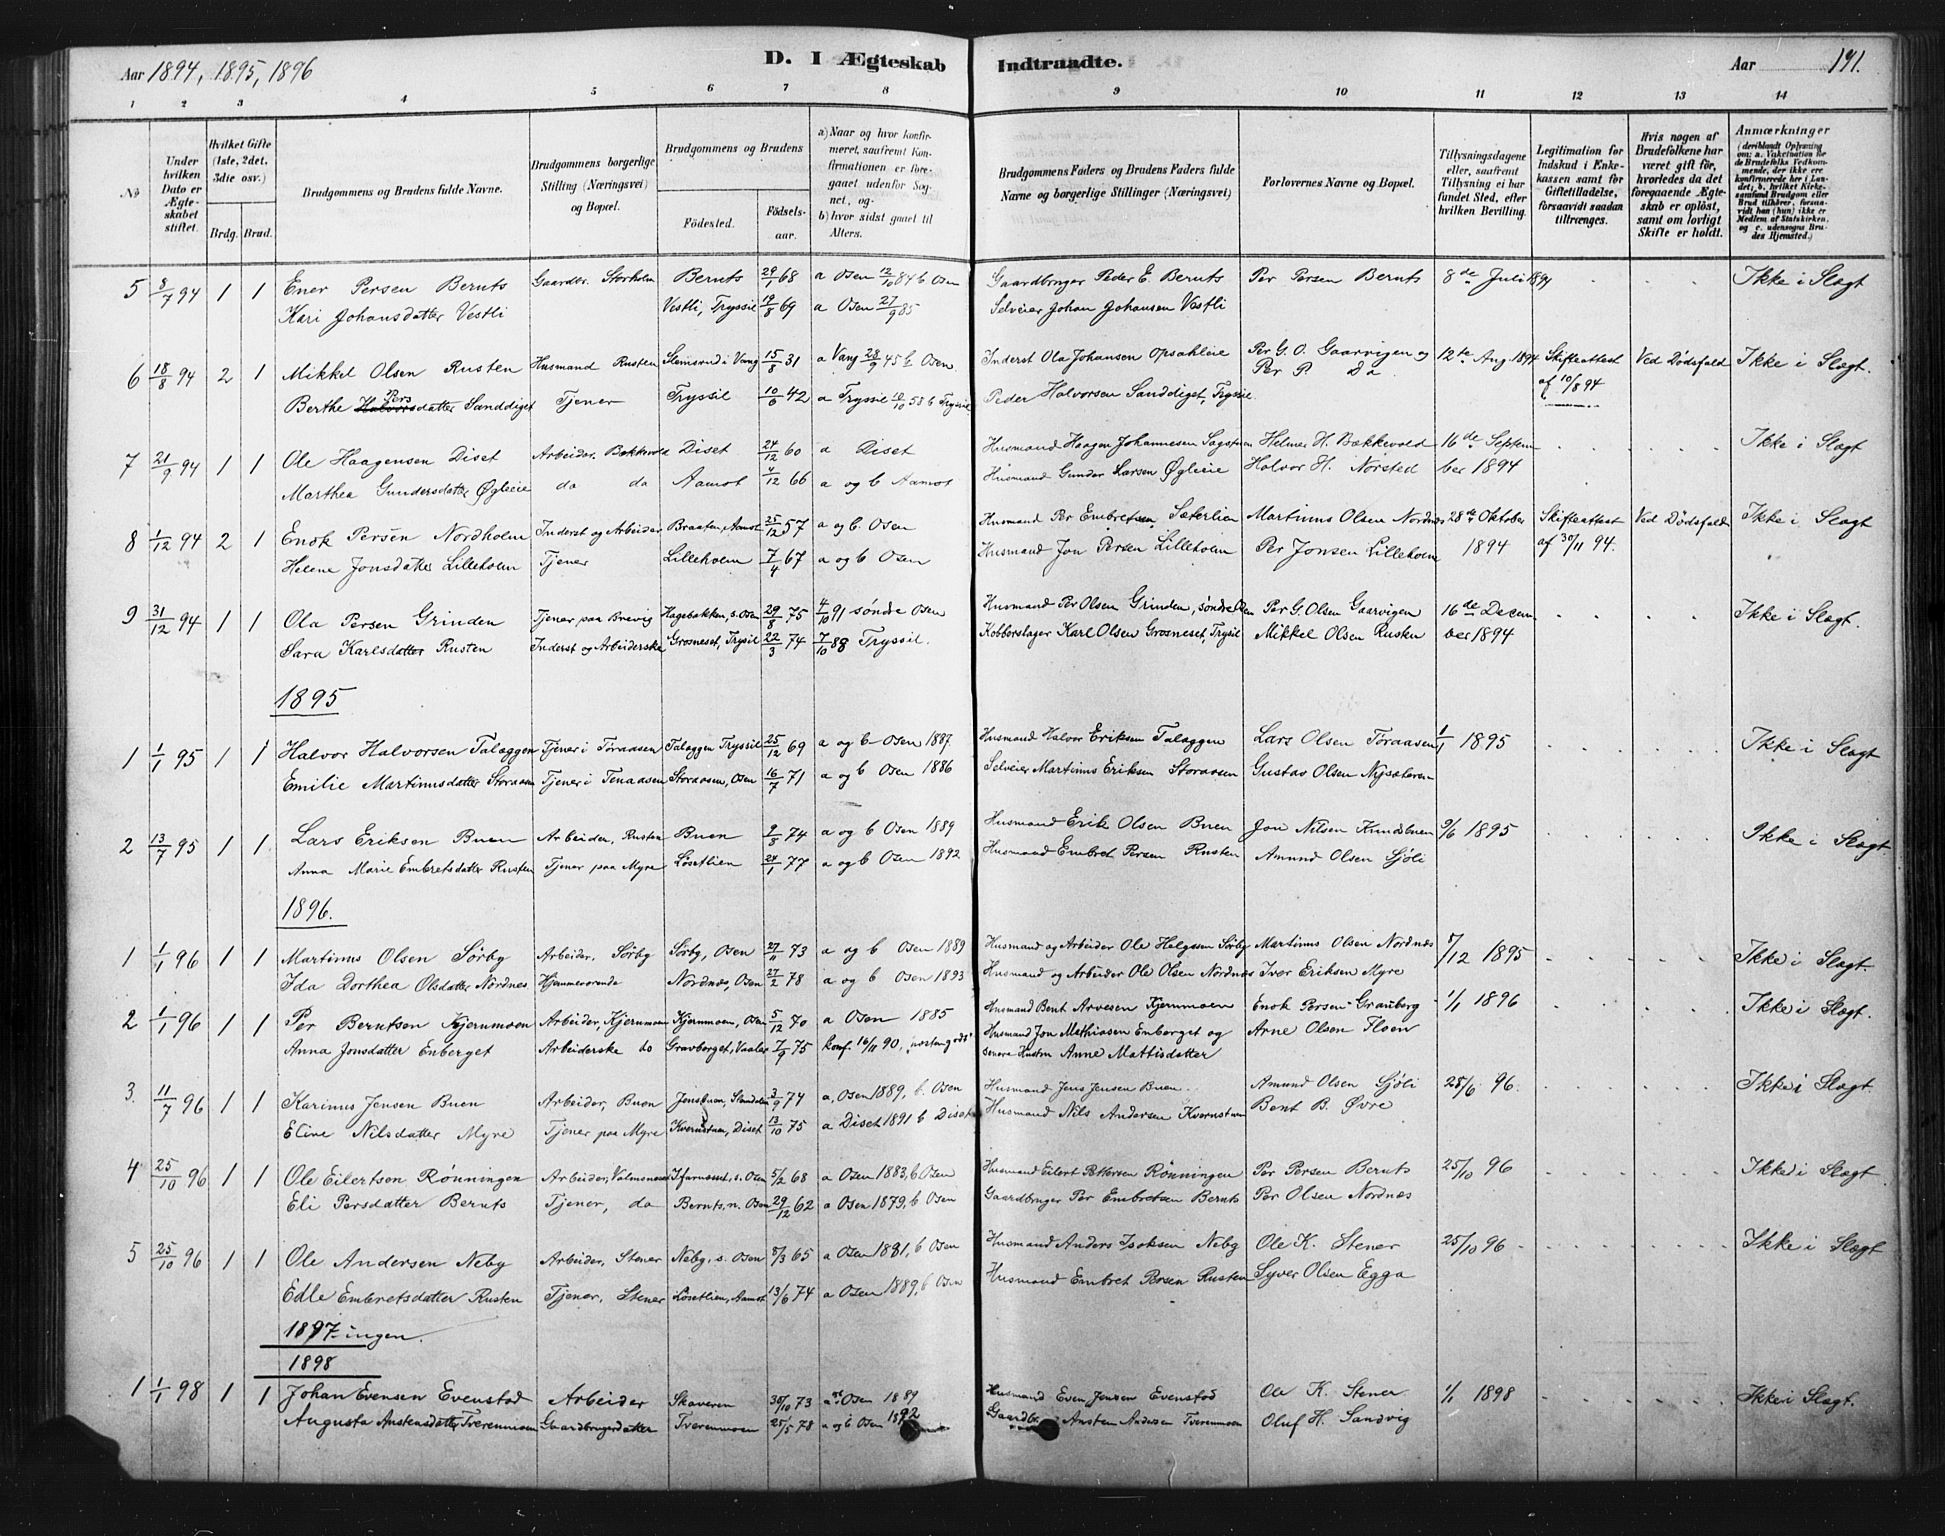 Aar 1894, 1895, 1896
D. I Ægteskab
Indtraadte.
Aar 191.
1 2 3 4 5 6 7 8 9 10 11 12 13 14
No
Under hvilken Dato er Ægteskabet stiftet.
Hvilket Gifte (1ste, 2det, 3die osv.)
Brdg. Brud.
Brudgommens og Brudens fulde Navne.
Brudgommens borgerlige Stilling (Næringsvei) og Bopæl.
Brudgommens og Brudens
Fødested.
Fødselsaar.
a) Naar og hvor konfirmeret, saafremt Konfirmationen er foregaaet udenfor Sognet, og
b) hvor sidst gaaet til Alters.
Brudgommens Faders og Brudens Faders fulde Navne og borgerlige Stillinger (Næringsvei)
Forlovernes Navne og Bopæl.
Tillysningsdagene eller, saafremt Tillysning ei har fundet Sted, efter hvilken Bevilling.
Legitimation for Indskud i Enkekassen samt for Giftetilladelse, forsaavidt saadan tiltrænges.
Hvis nogen af Brudefolkene har været gift før, hvorledes da det foregaaende Ægteskab er opløst, samt om lovligt Skifte er holdt.
Anmærkninger (deriblandt Oplysning om: a. Vakcination for de Brudefolks Vedkommende, der ikke ere konfirmerede her i Landet; b. hvilket Kirkesamfund Brudgom eller Brud tilhører, forsaavidt han (hun) ikke er Medlem af Statskirken, og c. udensogns Brudes Hjemsted.)
5 8/7 94 1 1 Ener Persen Beruts Gaardbr. Storholm Beruts 29/1 68 a Osen 12/10 84 b Osen Gaardbruger Peder E. Beruts Per Persen Beruts 8de Juli 1894 Ikke i Slægt
Kari Johansdatter Vestli Vestli, Tryssil 19/8 69 a Osen 27/9 85 Selveier Johan Johansen Vestli
6 18/8 94 2 1 Mikkel Olsen Rusten Husmand Rusten Slemsrud i Vang 15/8 31 a Vang 28/9 45 b Osen Inderst Ola Johansen Opsahleie Per G. O. Gaarvigen og 12te Aug 1894 Skifteattest Ved Dødsfald Ikke i Slægt.
Berthe Halvorsdatter Pers Sanddiget Tjener Tryssil 10/6 42 a Tryssil 10/10 58 b Tryssil. Peder Halvorsen Sanddiget, Tryssil Per P. Do af 10/8 94
7 21/9 94 1 1 Ole Haagensen Diset Arbeider. Bækkevold Diset 24/12 60 a Diset Husmand Haagen Johannesen Sagstuen Helmer H. Bækkevold 16de Septem Ikke i Slægt
Marthea Gundersdatter Øgleie do do Aamot 4/12 66 a og b Aamot Husmand Gunder Larsen Øgleie Halvor H. Nørsted ber 1894
8 1/12 94 2 1 Enok Persen Nordholm Inderst og Arbeider Braaten, Aamot 25/12 57 a og b. Osen Husmand Per Embretsen Sæterlien Martinus Olsen Nordnæs 28de Oktober Skifteattest Ved Dødsfald Ikke i Slægt
Helene Jonsdatter Lilleholm Tjener Lilleholm 7/4 67 a og b Osen Husmand Jon Persen Lilleholm Per Jonsen Lilleholm 1894 af 30/11 94.
9 31/12 94 1 1 Ola Persen Grinden Tjener paa Brevig Hagebakken, s. Osen 29/8 75 4/10 91 søndre Osen Husmand Per Olsen Grinden, søndre Osen Per G. Olsen Gaarvigen 16de Decem Ikke i Slægt.
Sara Karlsdatter Rusten Inderst og Arbeiderske Grosneset, Trysil 22/3 74 7/10 88 Tryssil. Kobberslager Karl Olsen Grosneset, Trysil Mikkel Olsen Rusten ber 1894
1895
1 1/1 95 1 1 Halvor Halvorsen Talaggen Tjener i Toraasen Talaggen Tryssil 25/12 69 a og b Osen 1887. Husmand Halvor Eriksen Talaggen Lars Olsen Toraasen 1/1 1895 Ikke i Slægt
Emilie Martinusdatter Storaasen Tjener i Tenaasen Storaasen, Osen 16/7 71 a og b Osen 1886 Selveier Martinus Eriksen Storaasen Gustav Olsen Nysæteren
2 13/7 95 1 1 Lars Eriksen Buen Arbeider, Rusten Buen 9/8 74 a og b Osen 1889 Husmand Erik Olsen Buen Jon Nilsen Knudsbuen 9/6 1895 Ikke i Slægt
Anna Marie Embretsdatter Rusten Tjener paa Myre Løsetlien 24/1 77 a og b Osen 1892 Husmand Embret Persen Rusten Amund Olsen Sjøli
1896.
1 1/1 96 1 1 Martinus Olsen Sørby Arbeider, Sørby Sørby, Osen 27/11 73 a og b Osen 1889 Husmand og Arbeider Ole Helgesen Sørby Martinus Olsen Nordnæs 8/12 1895 Ikke i Slægt.
Ida Dorthea Olsdatter Nordnes. Hjemmeværende Nordnæs, Osen 27/2 78 a og b Osen 1893 Husmand og Arbeider Ole Olsen Nordnæs Iver Eriksen Myre
2 1/1 96 1 1 Per Berntsen Kjernmoen Arbeider, Kjernmoen Kjernmoen, Osen 5/12 70 a Osen 1885 Husmand Bent Arvesen Kjernmoen Enok Persen Gravberg 1/1 1896 Ikke i Slægt.
Anna Jonsdatter Enberget Arbeiderske do Gravberget, Vaaler 7/9 75 konf. 16/11 90, Husmand Jon Mathiasen Enberget og Arne Olsen Ilsen
senere Hustru Anne Mattisdatter
3. 11/7 96 1 1 Karinus Jensen Buen Arbeider, Buen 3/9 74 a. Osen 1889, b. Osen Husmand Jens Jensen Buen. Amund Olsen Sjöli 28/6 96. Ikke i Slægt.
Eline Nilsdatter Myre Tjener paa Myre Kvernstuen, Diset 13/10 75 a Diset 1891 b Diset Husmand Nils Andersen Kvernstuen Bent B. Øvre
4 25/10 96 1 1 Ole Eilertsen Rønningen Arbeider, Valmsneset s. Osen 5/2 68 a Osen 1883, b Osen Husmand Eilert Pettersen Rønningen Per Persen Beruts 25/10 96 Ikke i Slægt
Eli Persdatter Beruts Tjener, do Beruts, n. Osen 29/12 62 a Osen 1879, b Osen Gaardbruger Per Embretsen Beruts Per Olsen Nordnæs
5 25/10 96 1 1 Ole Andersen Neby Arbeider, Stener Neby, s. Osen 8/3 65 a Osen 1881, b Osen Husmand Anders Isaksen Neby Ole K. Stener 25/10 96 Ikke i Slægt
Edle Embretsdatter Rusten Tjener, Stener Løsetlien, Aamot 13/6 74 a Osen 1889, b Osen Husmand Embret Persen Rusten Syver Olsen Egga
1897 ingen.
1898
1 1/1 98 1 1 Johan Evensen Evenstad Arbeider Skaveren 30/10 73 a Osen 1889 Husmand Even Jensen Evenstad Ole K. Stener 1/1 1898 Ikke i Slægt.
Augusta Austensdatter Tverenmoen Gaardbrugerdatter Tverenmoen 25/5 78 a og b Osen 1892 Gaardbr. Austen Andersen Tverenmoen Oluf H. Sandvig